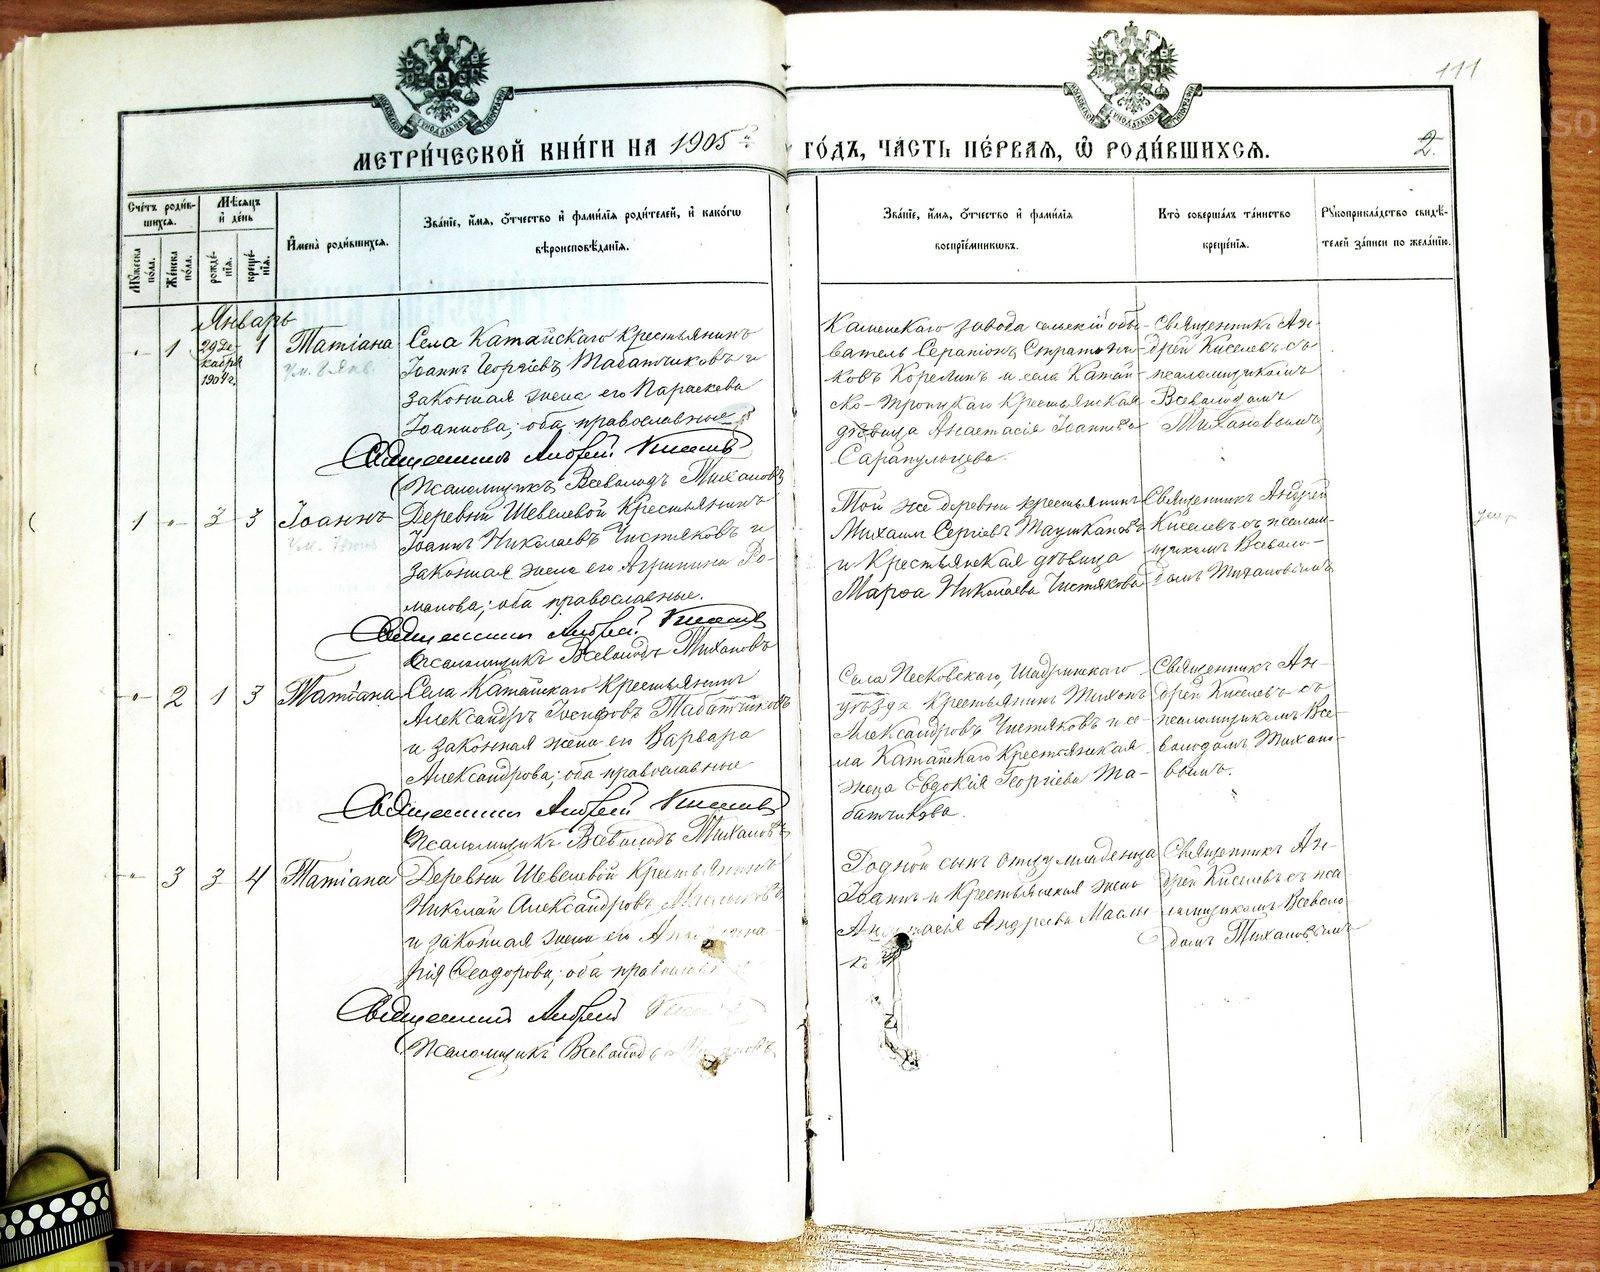 111
МОСКОВСКОЙ СИНОДАЛЬНОЙ ТИПОГРАФІИ
МОСКОВСКОЙ СИНОДАЛЬНОЙ ТИПОГРАФІИ
МЕТРИ́ЧЕСКОЙ КНИ́ГИ НА 1905 й
ГО́ДЪ, ЧА́СТЬ ПЕ́РВАЯ, Ѡ РОДИ́ВШИХСЯ.
2.
Сче́тъ роди́в-
шихся.
Мꙋ́жеска по́ла.
Же́нска по́ла.
Мѣ́сяцъ
и҆ де́нь
рожде́-
нїя.
креще́-
нїя.
И҆мена̀ роди́вшихся.
Зва́нїе, и҆́мя, ѻ҆́тчество и҆ фами́лїя роди́телей, и҆ како́гѡ
вѣроисповѣ́данїя.
Зва́нїе, и҆́мя, ѻ҆́тчество и҆ фами́лїя
воспрїе́мникѡвъ.
Кто̀ соверша́лъ та́инство
креще́нїя.
Рꙋкоприкла́дство свидѣ́-
телей за́писи по жела́нїю.
Январь
„ 1 29 Де-
кабря
1904 г. 1 Татіана
ум. 8 Янв.
Села Катайскаго крестьянинъ
Іоаннъ Георгіевъ Табатчиковъ и
законная жена его Параскева
Іоаннова; оба православные
Священникъ Андрей Киселевъ
Псаломщикъ Всеволодъ Тихановъ
Каменскаго завода сельскій обы-
ватель Серапіонъ Стратони-
ковъ Корелинъ и села Катай-
ско-Троицкаго крестьянская
дѣвица Анастасія Іоаннова
Сарапульцева.
Священникъ Ан-
дрей Киселевъ съ
псаломщикомъ
Всеволодомъ
Тихановымъ
1 „ 3 3 Іоаннъ
Деревни Шевелевой крестьянинъ
Іоаннъ Николаевъ Чистяковъ и
законная жена его Агрипина Ро-
манова; оба православные.
Священникъ Андрей Киселевъ
Псаломщикъ Всеволодъ Тихановъ
Той же деревни крестьянинъ
Михаилъ Сергіевъ Таушкановъ
и крестьянская дѣвица
Марѳа Николаева Чистякова
Священникъ Андрей
Киселевъ съ псалом-
щикомъ Всеволо-
домъ Тихановымъ
„ 2 1 3 Татіана
Села Катайскаго крестьянинъ
Александръ Іосифовъ Табатчиковъ
и законная жена его Варвара
Александрова; оба православные
Священникъ Андрей Киселевъ
Псаломщикъ Всеволодъ Тихановъ
Села Песковскаго, Шадринскаго
уѣзда крестьянинъ Тихонъ
Александровъ Чистяковъ и се-
ла Катайскаго крестьянская
жена Евдокія Георгіева Та-
батчикова.
Священникъ Ан-
дрей Киселевъ съ
псаломщикомъ Все-
володомъ Тихано-
вымъ.
„ 3 3 4 Татіана
Деревни Шевелевой крестьянинъ
Николай Александровъ
и законная жена его
рія Ѳеодорова; оба православ
Священникъ Андрей
Псаломщикъ Всеволодъ Тихановъ
Родной сынъ отцу младенца
Іоаннъ и крестьянская жена
Анастасія Андреева Маслы-
Священникъ Ан-
дрей Киселевъ съ пса-
ломщикомъ Всеволо-
домъ Тихановымъ